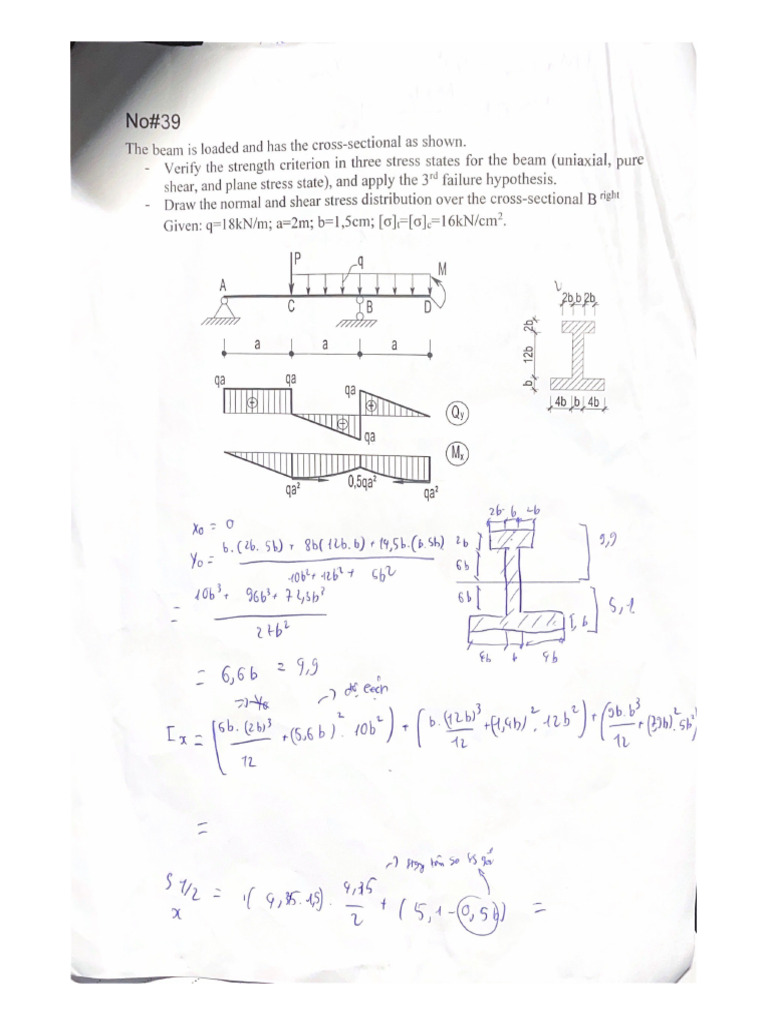 No#39
The beam is loaded and has the cross-sectional as shown.
- Verify the strength criterion in three stress states for the beam (uniaxial, pure
shear, and plane stress state), and apply the 3rd failure hypothesis.
- Draw the normal and shear stress distribution over the cross-sectional B right
Given: q=18kN/m; a=2m; b=1,5cm; [σ]t=[σ]c=16kN/cm2.
P
q
M
A
C
B
D
a
a
a
2b b 2b
2b
12b
b
4b b 4b
qa
qa
qa
qa
Qy
Mx
qa2
0,5qa2
qa2
x0 = 0
y0 = b.(2b.5b) + 8b(12b.b) + 14,5b.(b.5b)
10b2 + 12b2 + 5b2
= 10b3 + 96b3 + 72,5b2
27b2
= 6,6b = 9,9
2b b 2b
2b
6b
6b
9,9
5,1
b
4b b 4b
Ix = (5b.(2b)3/12 + (5,6b)2.10b2) + (b.(12b)3/12 + (1,4b)2.12b2) + (9b.b3/12 + (7,9b)2.5b2
=
S1/2 x = (4,35.1,5).4,35/2 + (5,1-0,5b) =